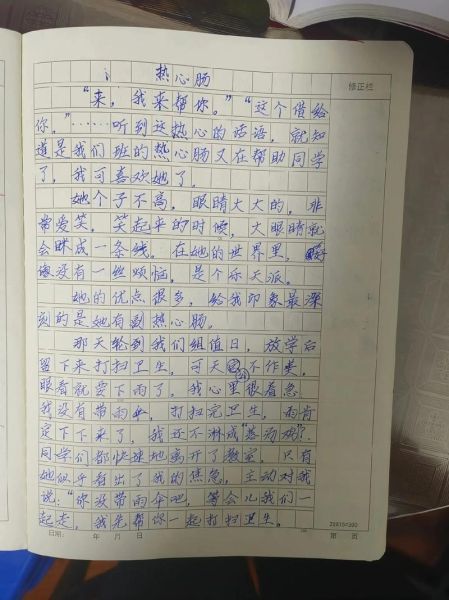 热心肠
修正栏
“来，我来帮你。”“这个借给
你。”……听到这热心的话语，就知
道是我们班的热心肠又在帮助同学
了，我可喜欢她了。
她个子不高，眼睛大大的，非
常爱笑，笑起来的时候，大眼睛就
会眯成一条线。在她的世界里，好
像没有一丝烦恼，是个乐天派。
她的优点很多，给我印象最深
刻的是她有副热心肠。
那天轮到我们组值日，放学后
留下来打扫卫生，可天公不作美，
眼看就要下雨了，我心里很着急，
我没有带雨伞，打扫完卫生，雨肯
定下下来了，我还不淋成“落汤鸡”？
同学们都快速地离开了教室，只有
她似乎看出了我的焦急，主动对我
说：“你没带雨伞吧，等会儿我们一
起走，我先帮你一起打扫卫生。
日期： 年 月 日
第 页